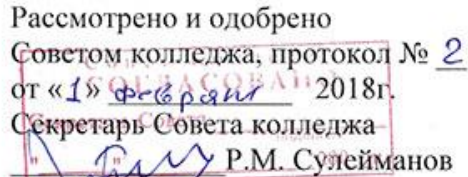 Рассмотрено и одобрено
Советом колледжа, протокол № 2
от «1» февраля 2018г.
СОГЛАСОВАНО
Секретарь Совета колледжа
Р.М. Сулейманов